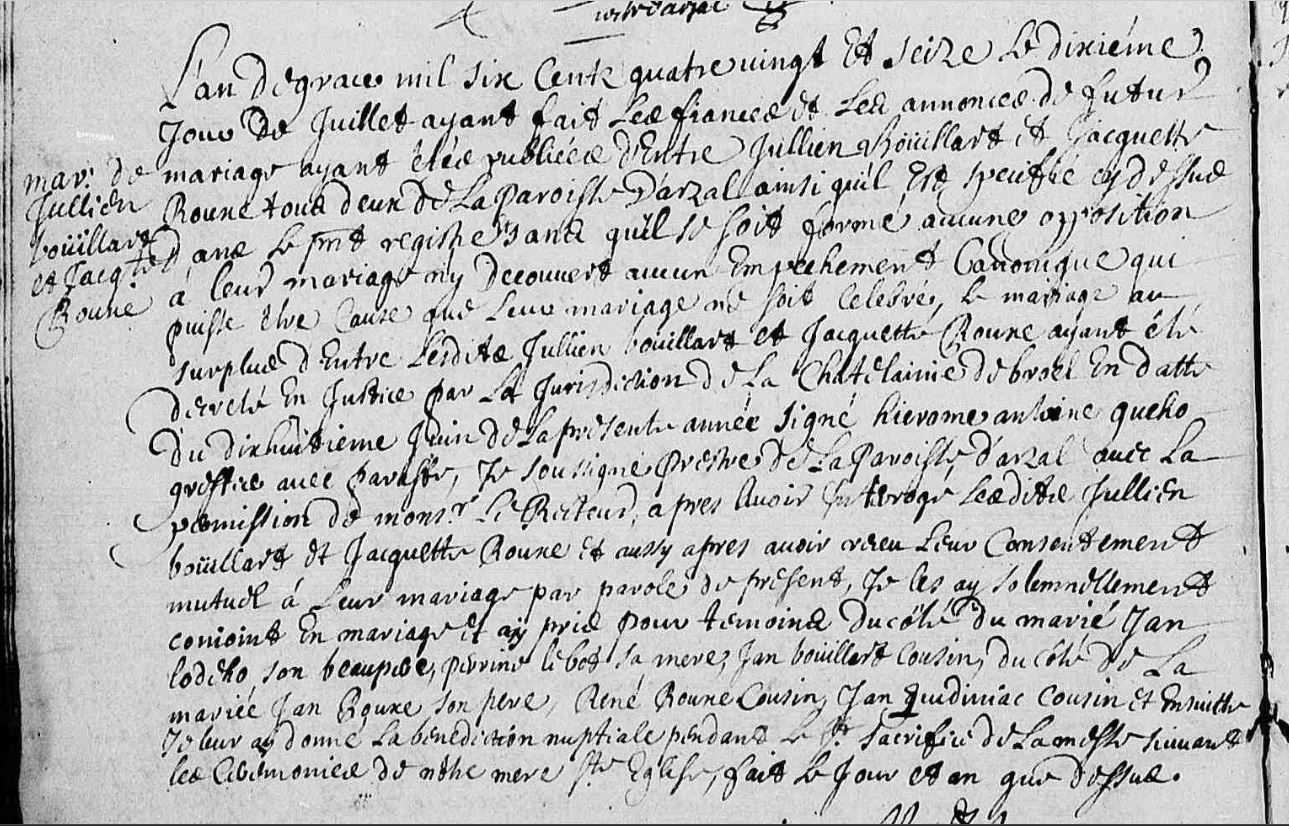 L'an de grace mil six cents quatre vingt et seize le dixiéme
jour de Juillet ayant fait les fiances et les annonces de futur
mariage ayant étées publiées d'Entre Jullien Boüillart et Jacquette
Roune tous deux de la Paroisse d'arzal ainsi qu'il est speciffié cy dessus
dans le pnt registre sans qu'il se soit formé aucune opposition
à leur mariage ny decouvert aucun Empechement Canonique qui
puisse être Cause que leur mariage ne soit Celebré, le mariage au
surplus d'Entre lesdits Jullien boüillart et Jacquette Roune ayant été
decreté En Justice par la Jurisdiction de la Chatelainie de broël En datte
du dixhuitieme Juin de la presente année signé hierome antoine queho
greffier avec paraffe, Je soussigné Prestre de la Paroisse d'arzal avec la
permission de mons.r le Recteur, apres avoir interogé lesdits Jullien
boüillart et Jacquette Roune et aussy apres avoir receu leur Consentement
mutuel à leur mariage par parole de present, Je les ay solemnellement
conioint En mariage et ay pris pour temoins du côté du marié Jan
lodeho son beaupere, perrine le bot sa mere, Jan boüillart Cousin, du côté de la
mariée Jan Roune son pere, René Roune Cousin, Jan quidiniac Cousin et Ensuitte
Je leur ay donné la bénédiction nuptiale pendant le st sacrifice de la messe suivant
les Ceremonies de nôtre mere ste Eglise, fait le Jour et an que dessus.
mar: de
Jullien
boüillart
et Jacq.te
Roune